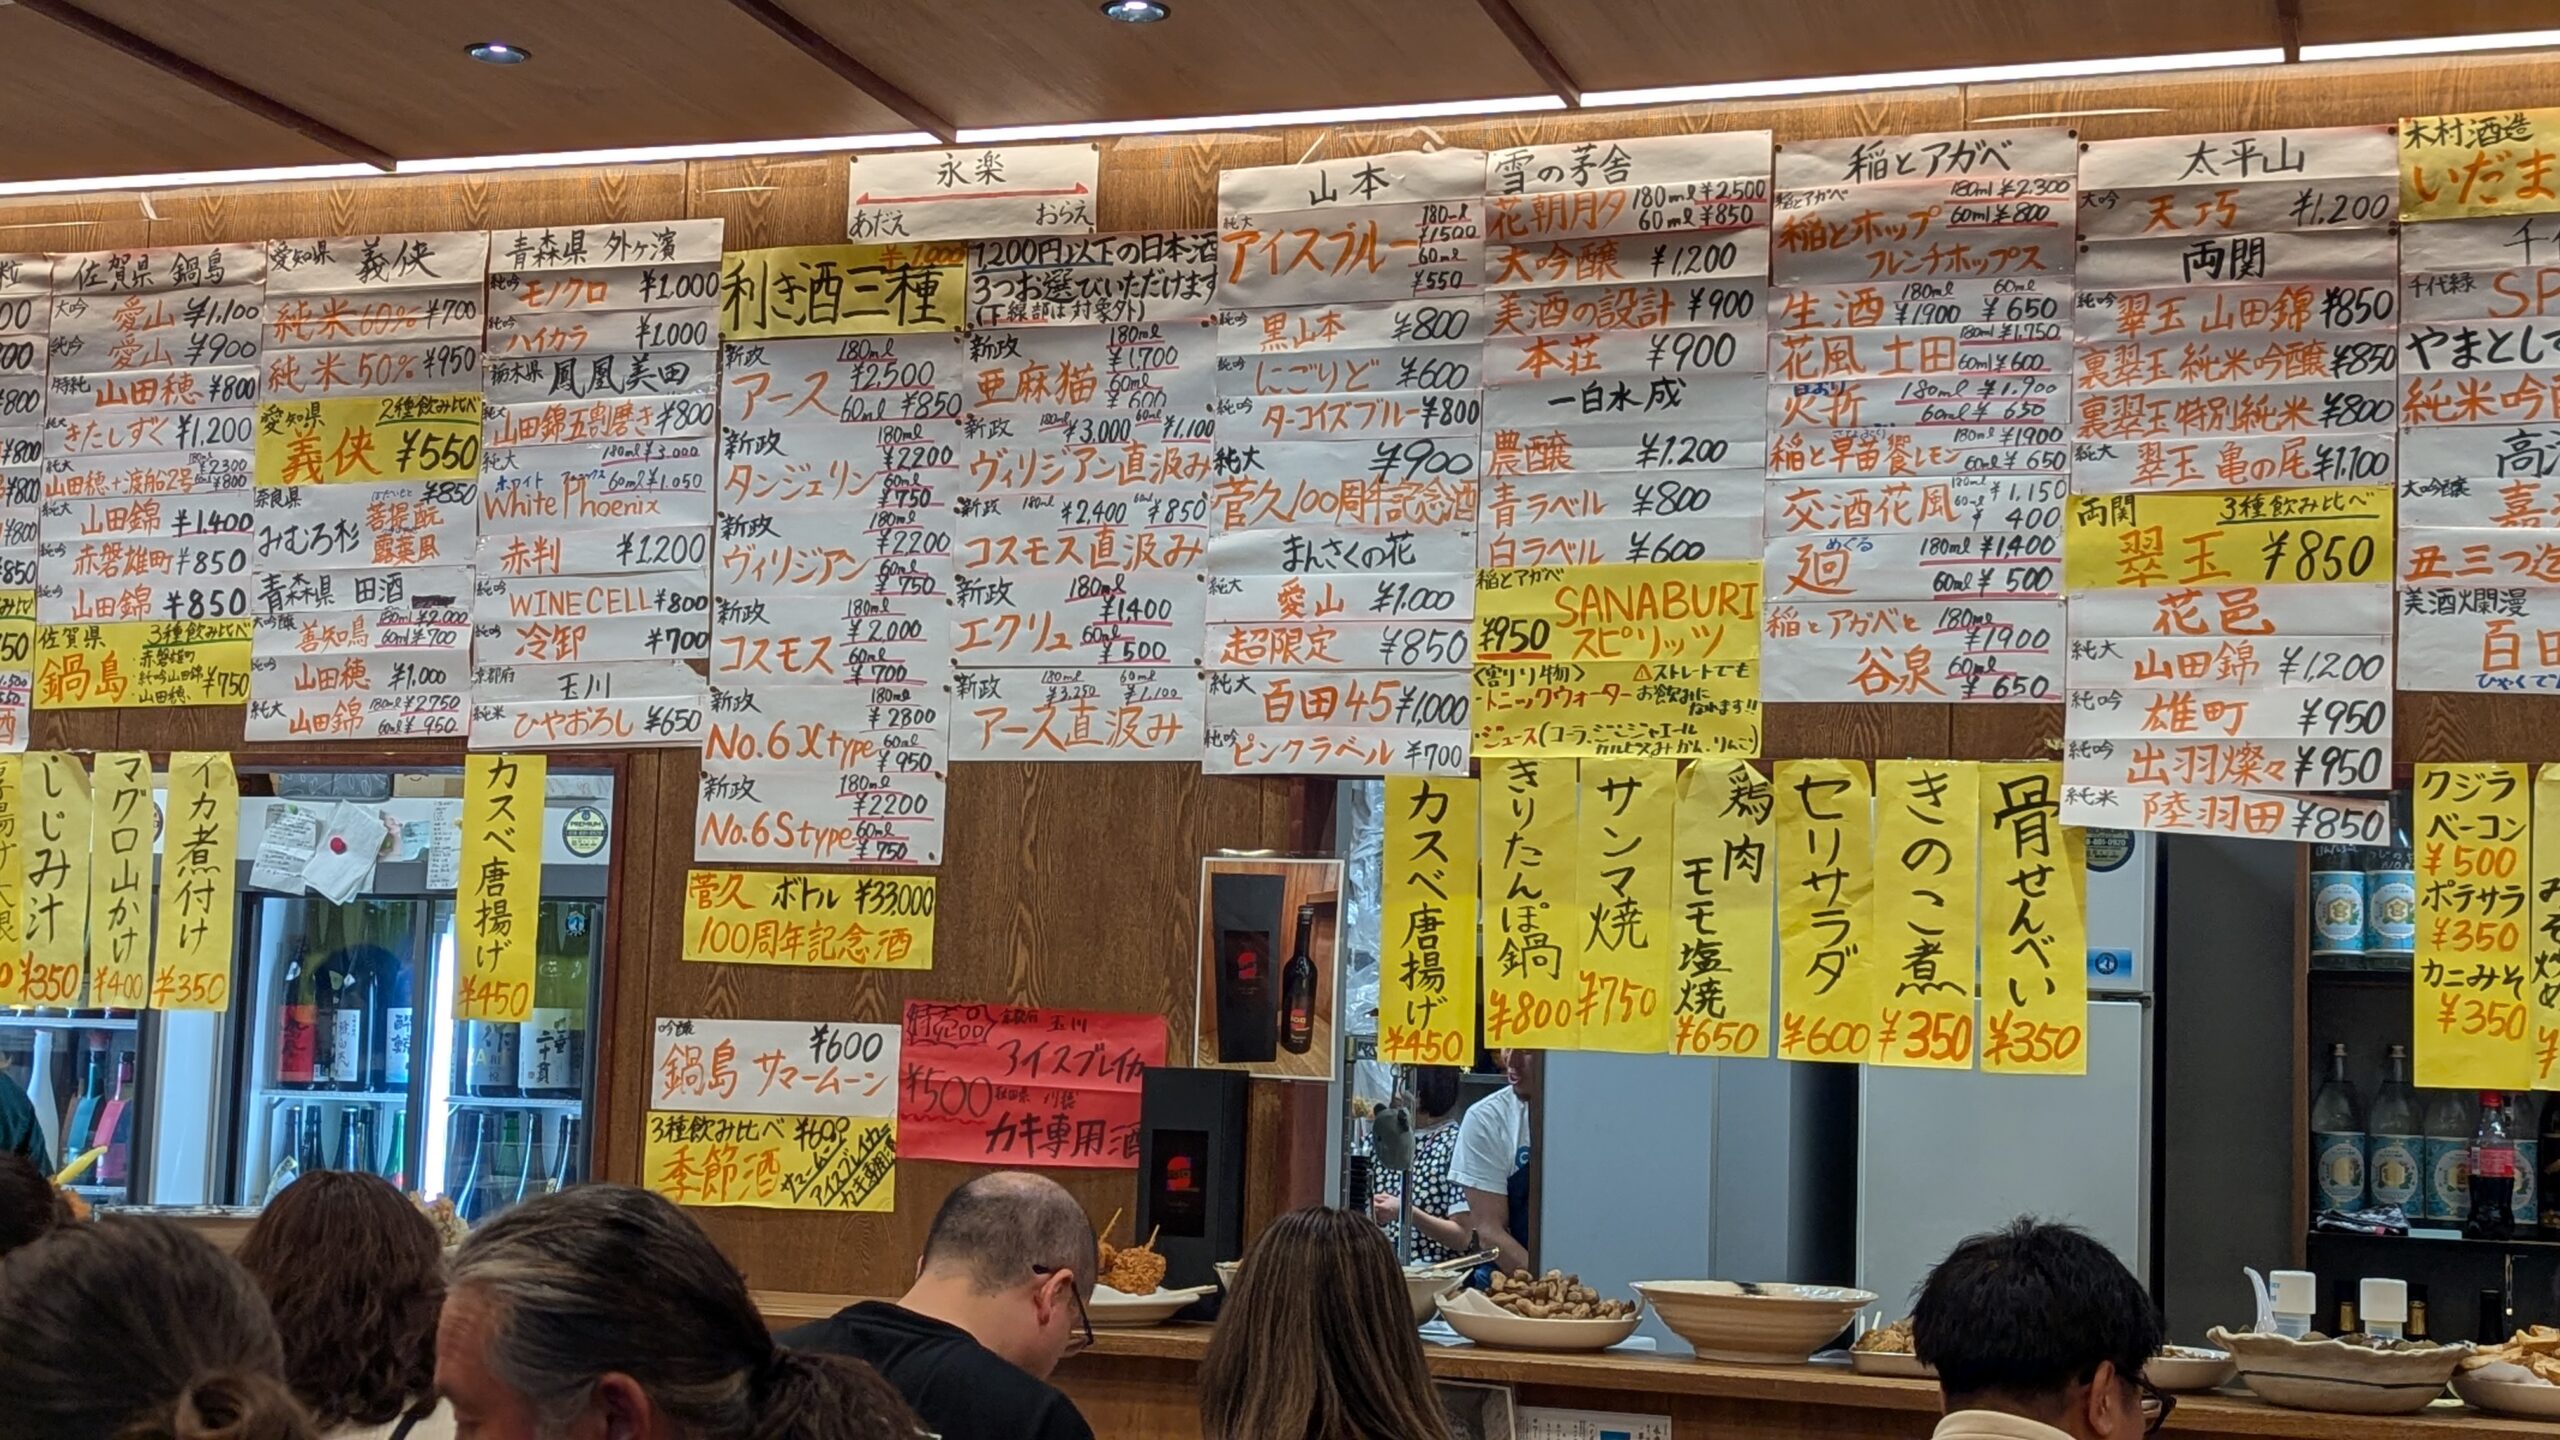 永楽
あだえ おらえ
佐賀県 鍋島
大吟 愛山 ¥1,100
純吟 愛山 ¥900
特純 山田穂 ¥800
純大 きたしずく ¥1,200
純大 山田穂+渡船2号 180ml ¥2300 60ml ¥800
純大 山田錦 ¥1,400
純吟 赤磐雄町 ¥850
純吟 山田錦 ¥850
佐賀県 3種飲み比べ
鍋島 ・赤磐雄町 ・純吟山田錦 ・山田穂 ¥750
愛知県 義侠
純米60% ¥700
純米50% ¥950
愛知県 2種飲み比べ
義侠 ¥550
奈良県 ¥850
みむろ杉 菩提酛 露葉風
青森県 田酒
大吟醸 善知鳥 180ml ¥2,000 60ml ¥700
純吟 山田穂 ¥1,000
純大 山田錦 180ml ¥2750 60ml ¥950
青森県 外ヶ濱
純吟 モノクロ ¥1,000
純吟 ハイカラ ¥1,000
栃木県 鳳凰美田
純大 山田錦五割磨き ¥800
純大 180ml ¥3,000
ホワイト フェニックス 60ml ¥1,050
White Phoenix
赤判 ¥1,200
純吟 WINECELL ¥800
純吟 冷卸 ¥700
京都府 玉川
純米 ひやおろし ¥650
¥1,000
利き酒三種
1,200円以下の日本酒
3つお選びいただけます
(下線部は対象外)
新政 アース 180ml ¥2,500 60ml ¥850
新政 タンジェリン 180ml ¥2200 60ml ¥750
新政 ヴィリジアン 180ml ¥2200 60ml ¥750
新政 コスモス 180ml ¥2,000 60ml ¥700
新政 No.6 X type 180ml ¥2800 60ml ¥950
新政 No.6 S type 180ml ¥2200 60ml ¥750
新政 亜麻猫 180ml ¥1,700 60ml ¥600
新政 180ml ¥3,000 60ml ¥1,100
ヴィリジアン直汲み
新政 180ml ¥2,400 60ml ¥850
コスモス直汲み
新政 エクリュ 180ml ¥1,400 60ml ¥500
新政 180ml ¥3,250 60ml ¥1,100
アース直汲み
菅久 ボトル ¥33,000
100周年記念酒
吟醸 ¥600
鍋島 サマームーン
3種飲み比べ ¥600
季節酒 サマームーン アイスブレイカー カキ専用酒
玉川
アイスブレイカー
¥500 秋田県
カキ専用酒
山本
純大 アイスブルー 180ml ¥1500 60ml ¥550
純吟 黒山本 ¥800
純吟 にごりど ¥600
純吟 ターコイズブルー ¥800
純大 ¥900
菅久100周年記念酒
まんさくの花
純大 愛山 ¥1,000
超限定 ¥850
純大 百田45 ¥1,000
純吟 ピンクラベル ¥700
雪の茅舎
花朝月夕 180ml ¥2,500 60ml ¥850
大吟醸 ¥1,200
美酒の設計 ¥900
本荘 ¥900
一白水成
農醸 ¥1,200
青ラベル ¥800
白ラベル ¥600
稲とアガベ
SANABURI
¥950 スピリッツ
〈割り物〉 ⚠ストレートでも
・トニックウォーター お飲みになれます!!
・ジュース(コーラ、ジンジャエール
カルピス、みかん、りんご)
稲とアガベ
稲とアガベ 180ml ¥2,300
稲とホップ 60ml ¥800
フレンチホップス
生酒 180ml ¥1900 60ml ¥650
花風 土田 180ml ¥1,750 60ml ¥600
火折 180ml ¥1,900 60ml ¥650
稲と早苗饗レモン 180ml ¥1900 60ml ¥650
交酒花風 180ml ¥1,150 60ml ¥400
めぐる
廻 180ml ¥1400 60ml ¥500
稲とアガベと 180ml ¥1900
谷泉 60ml ¥650
太平山
大吟 天巧 ¥1,200
両関
純吟 翠玉 山田錦 ¥850
裏翠玉 純米吟醸 ¥850
裏翠玉 特別純米 ¥800
純大 翠玉 亀の尾 ¥1,100
両関 3種飲み比べ
翠玉 ¥850
花邑
純大 山田錦 ¥1,200
純吟 雄町 ¥950
純吟 出羽燦々 ¥950
純米 陸羽田 ¥850
木村酒造
いだま
千代緑 SP
やまとし
純米吟
大吟醸
丑三つ
美酒爛漫
百田
しじみ汁 ¥350
マグロ山かけ ¥400
イカ煮付け ¥350
カスベ唐揚げ ¥450
カスベ唐揚げ ¥450
きりたんぽ鍋 ¥800
サンマ焼 ¥750
鶏肉モモ塩焼 ¥650
セリサラダ ¥600
きのこ煮 ¥350
骨せんべい ¥350
クジラベーコン ¥500
ポテサラ ¥350
カニみそ ¥350